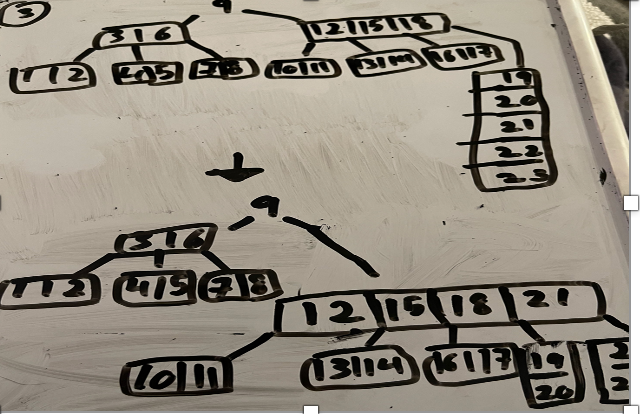 3
9
3 | 6
12 | 15 | 18
1 | 2
4 | 5
7 | 8
10 | 11
13 | 14
16 | 17
19
20
21
22
23
9
3 | 6
1 | 2
4 | 5
7 | 8
12 | 15 | 18 | 21
10 | 11
13 | 14
16 | 17
19
20
2
2